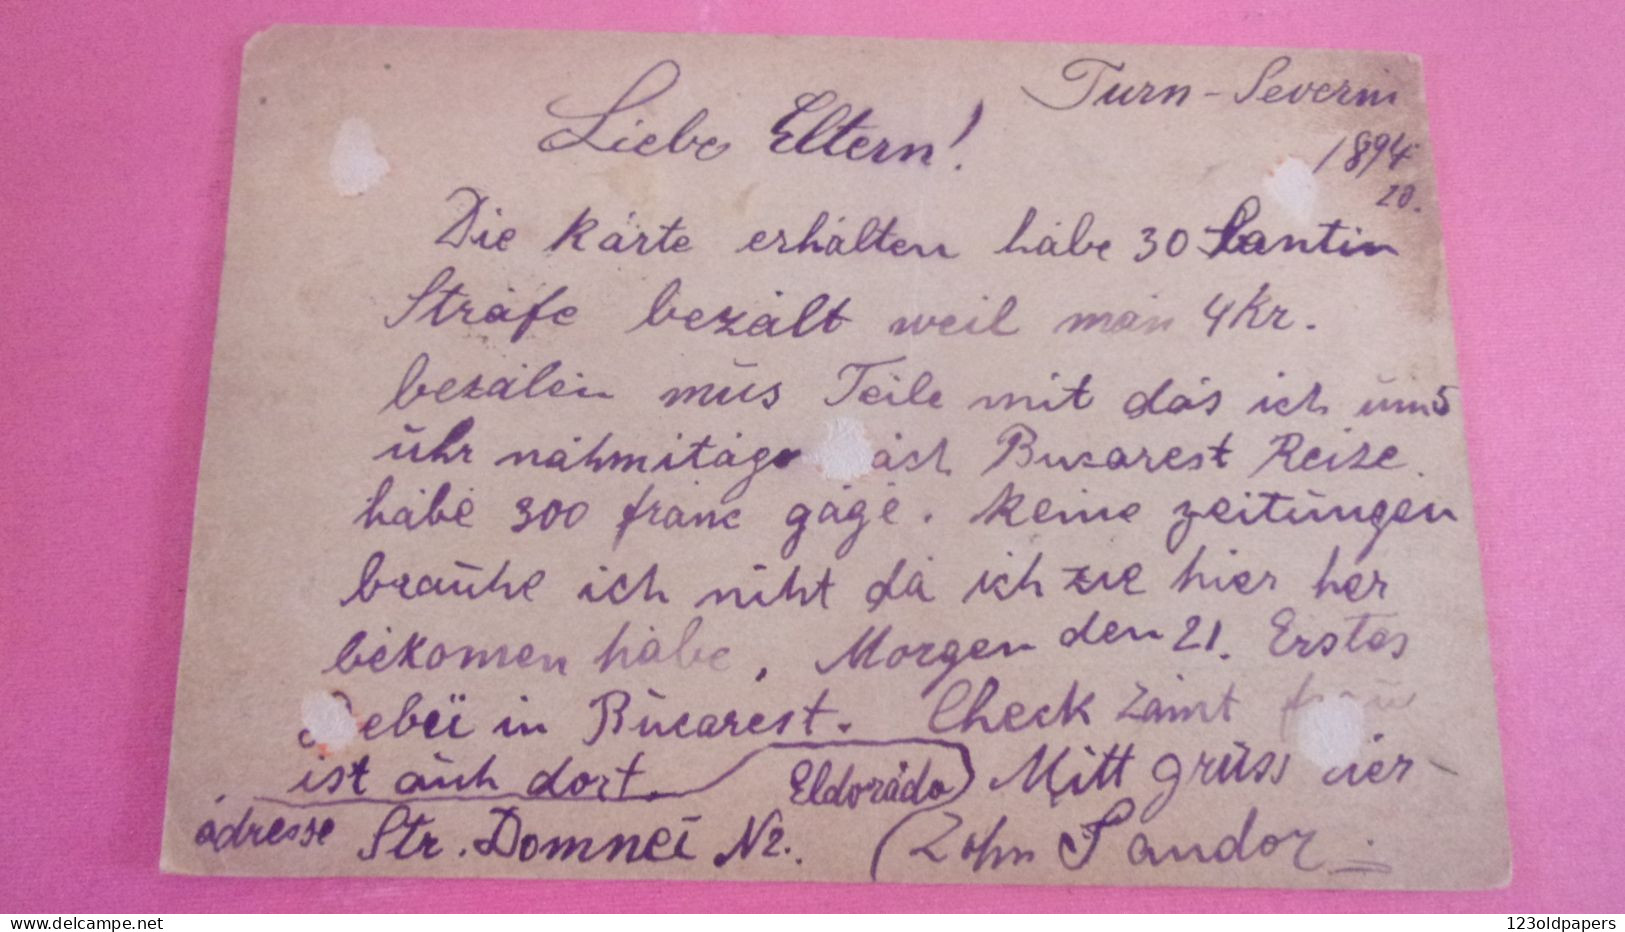 Turn-Severin
1894
20.
Liebe Eltern!
Die Kárte erhálten hábe 30 Santin
Stráfe bezált weil mán 4 Kr.
bezálen mus Teile mit dás ich um 5
uhr náhmitágs Bucarest Reise.
hábe 300 franc gáge. Keine zeitungen
brauhe ich niht dá ich zie hier her
bekomen hábe, Morgen den 21. Erstes
in Bucarest. Check zámt frau
ist auh dort. Eldorádo Mitt grüss
adresse Str. Domnei N2. Zohn Sandor
123oldpapers
www.delcampe.net